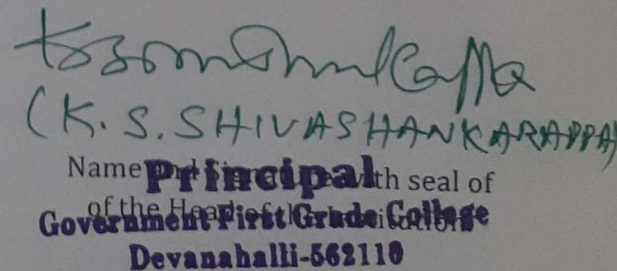 (K. S. SHIVASHANKARAPPA)
Name and Signature with seal of
Principal
of the Head of the Institution
Government First Grade College
Devanahalli-562110